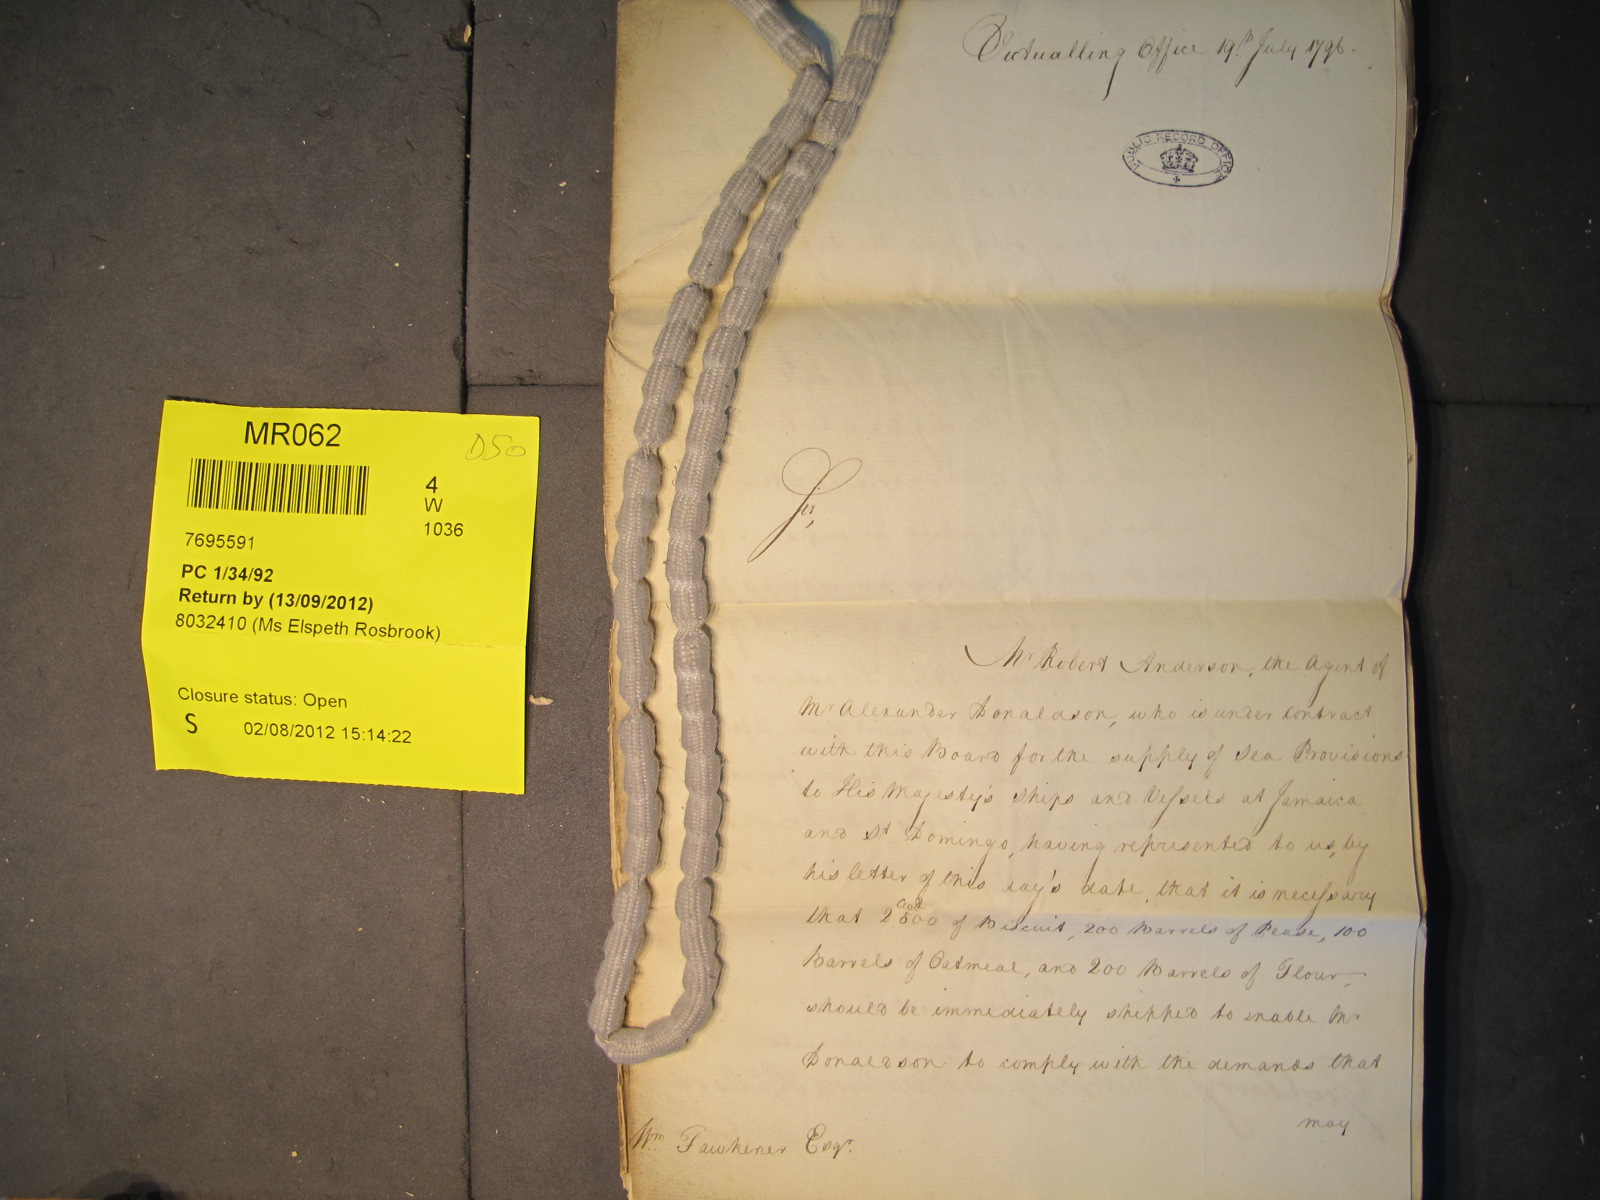 MR062
D50
4
W
1036
7695591
PC 1/34/92
Return by (13/09/2012)
8032410 (Ms Elspeth Rosbrook)
Closure status: Open
S 02/08/2012 15:14:22
Victualling Office 19th July 1796.
PUBLIC RECORD OFFICE
Sir,
Mr Robert Anderson, the Agent of
Mr Alexander Donaldson, who is under contract
with this Board for the supply of Sea Provisions
to His Majesty's Ships and Vessels at Jamaica
and St Domingo, having represented to us, by
his letter of this day's date, that it is necessary
that 2500 Cwt of Biscuit, 200 Barrels of Pease, 100
Barrels of Oatmeal, and 200 Barrels of Flour
should be immediately shipped to enable Mr
Donaldson to comply with the demands that
may
Wm Fawkener Esqr.